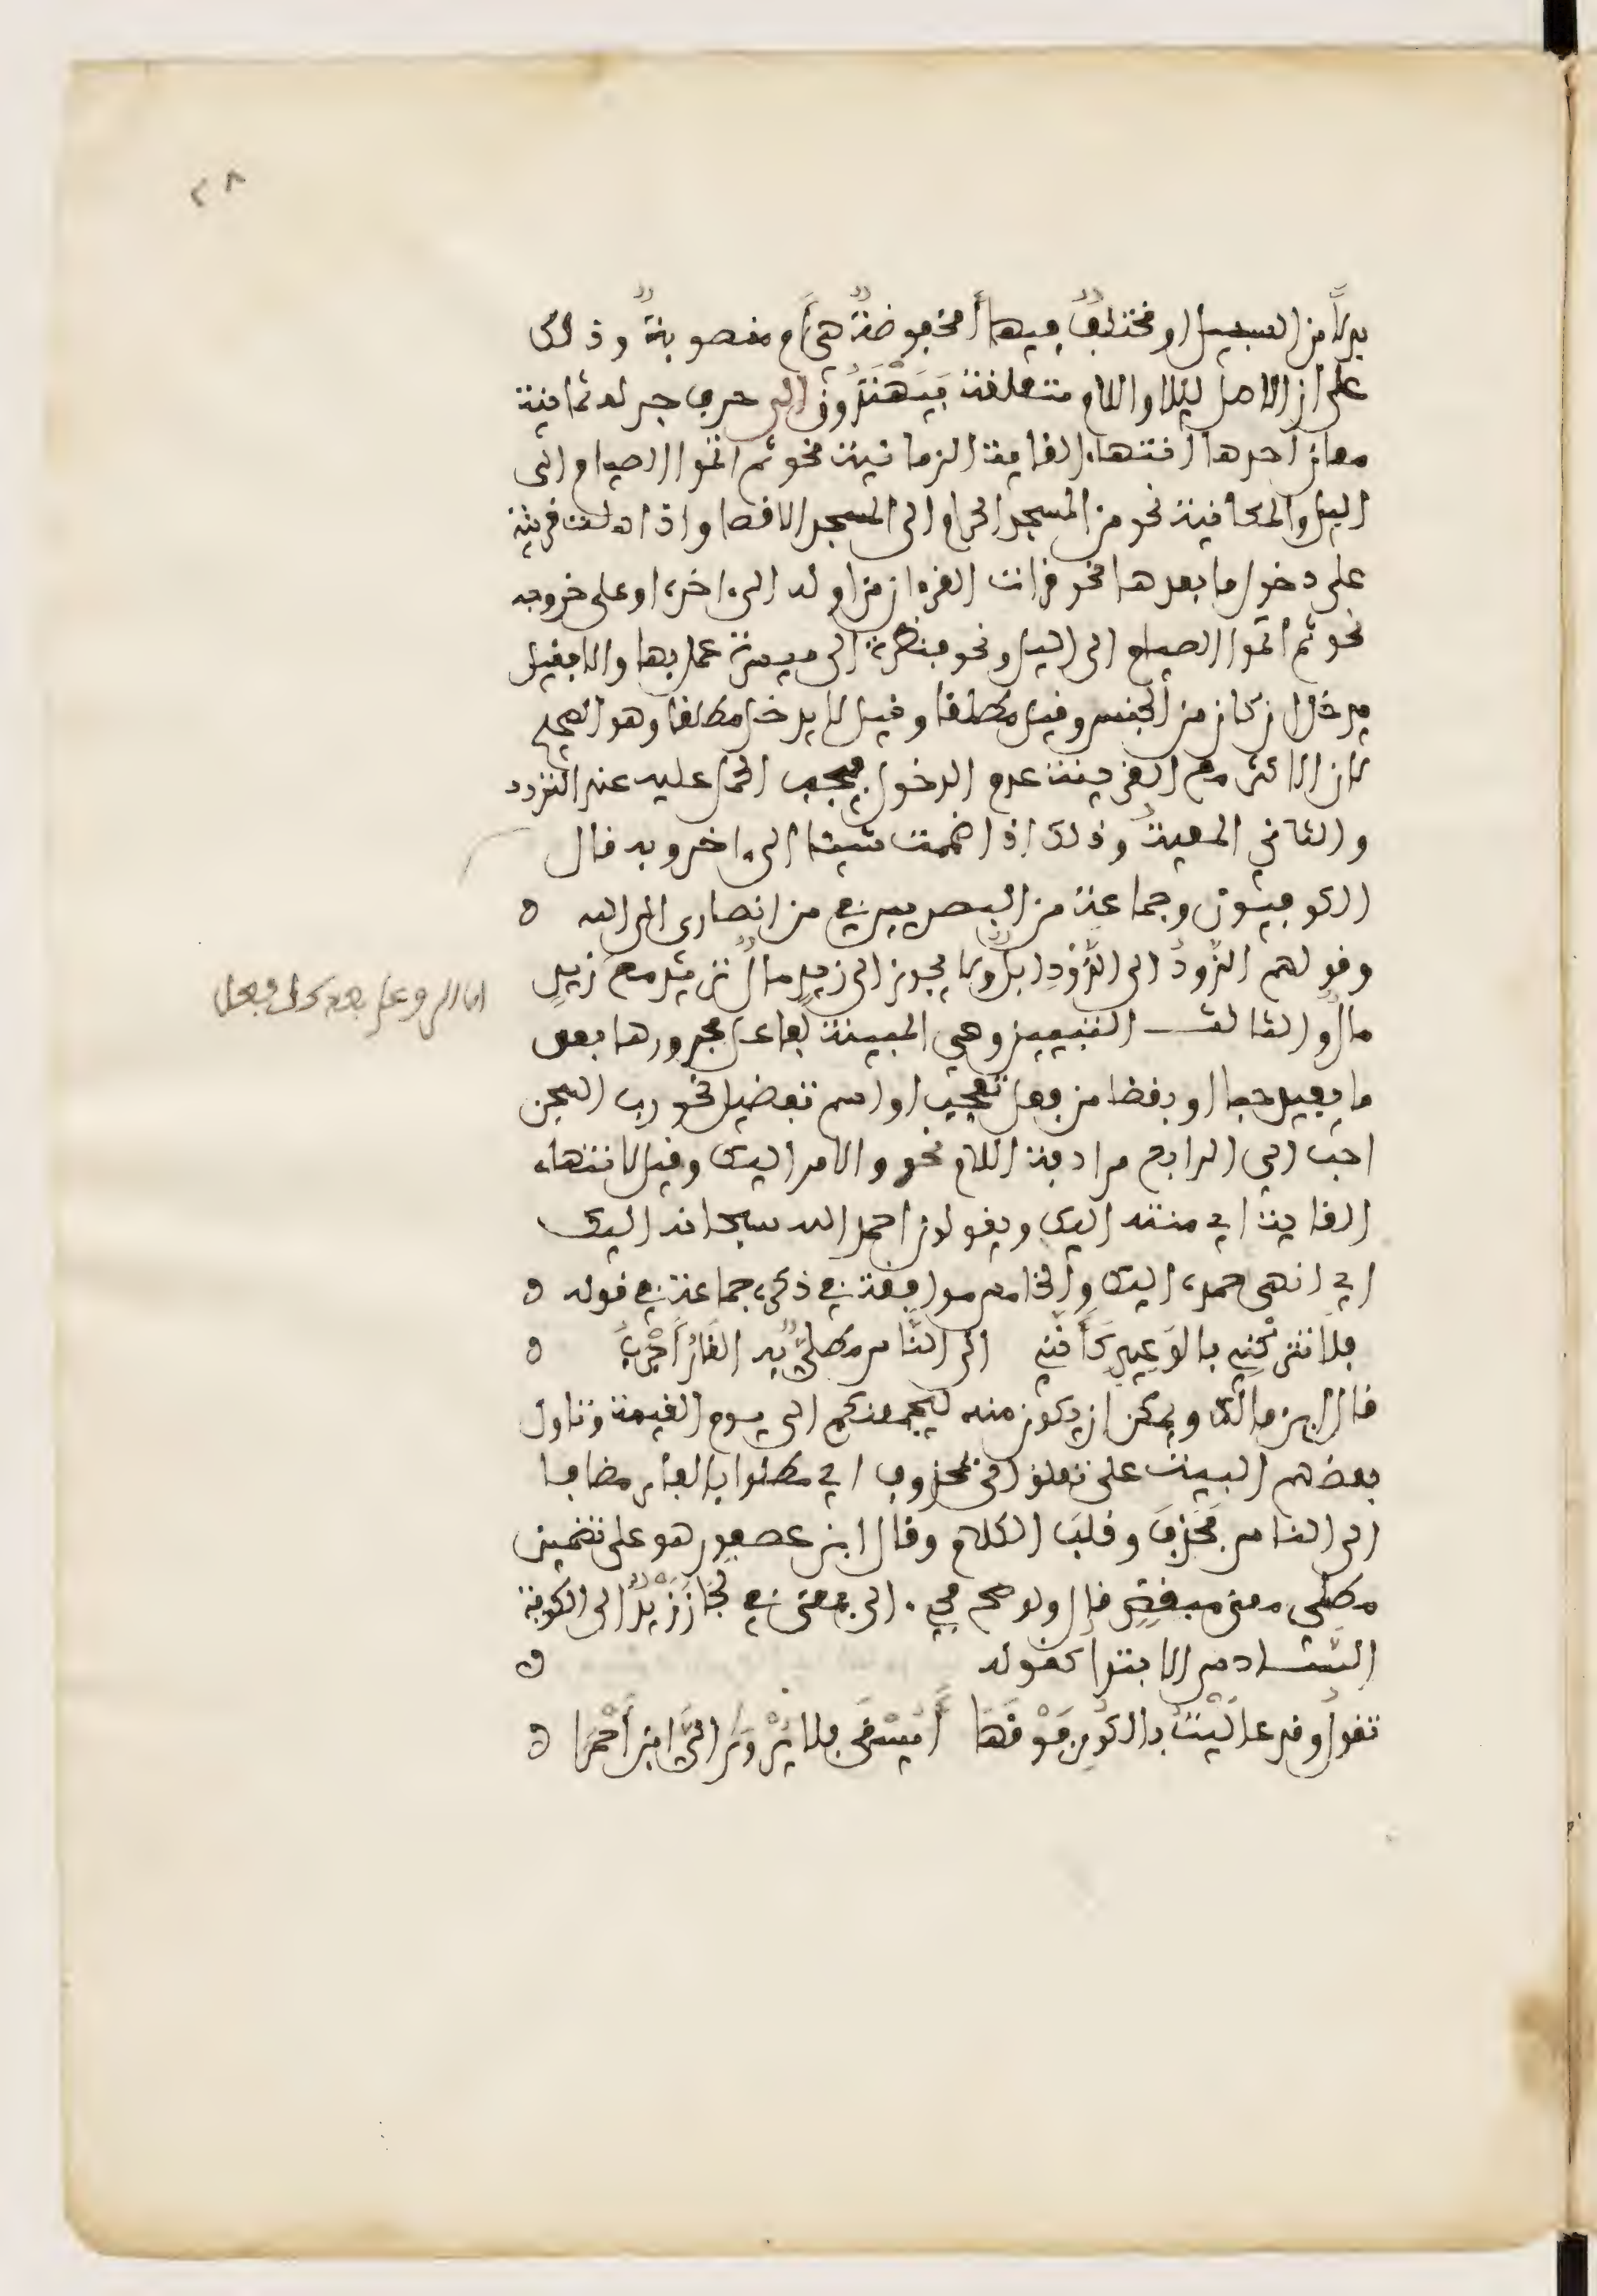 ٢٨
بدلاً من السبيل او مختلفٌ فيها أمخفوضةٌ هيَ أم منصوبةٌ وذلك
على ان الاصل ليلا واللام متعلقة بيَهْتَدُون الى حرف جر له ثمانية
معان احدها انتهاء الغاية الزمانية نحو ثم اتموا الصيام الى
اليل والمكانية نحو من المسجد الحرام الى المسجد الاقصا واذا دلت قرينة
على دخول ما بعدها نحو قرات القرءان من اوله الى ءاخره او على خروجه
نحو ثم اتموا الصيام الى اليل ونحو فنظرة الى ميسرة عمل بها والا فقيل
يدخل ان كان من الجنس وقيل مطلقا وقيل لا يدخل مطلقا وهو الصحيح
لان الاكثر مع القرينة عدم الدخول فيجب الحمل عليه عند التردد
والثاني المعية وذلك إذا ضممت شيئا الى ءاخر وبه قال
الكوفيون وجماعة من البصريين في من انصارى الى الله
وقولهم الذَّودُ الى الذَّوْدِ ابلٌ ولا يجوز الى زيدٍ مالٌ تريد مع زيدٍ
مالٌ والثالث التبيين وهي المبينة لفاعل مجرورها بعد
ما يفيد حبا او بغضا من فعل تعجب او اسم تفضيل نحو رب السجن
احب الي الرابع مرادفة اللام نحو والامر اليك وقيل لانتهاء
الغاية اي منته اليك ويقولون احمد الله سبحانه اليك
اي انهى حمده اليك والخامس موافقة في ذكره جماعة في قوله
فلا تتركنِّي بالوَعِيدِ كَأَنَّنِي الى النَّاسِ مَطْلِيٌّ بِهِ القَارُ أَجْرَبُ
قال ابن مالك ويمكن ان يكون منه ليجمعنكم الى يوم القيمة وتاول
بعضهم البيت على تعلق الى بمحذوف اي مطلوا بالقار مضافا
الى الناس فحَذفَ وقلبَ الكلام وقال ابن عصفور هو على تضمين
مطلي معنى مبغض قال ولو صح مجيء الى بمعنى في لَجازَ زَيْدٌ الى الكوفة
السادس الابتدا كقوله
تقول وقد عاليْتُ بالكُورِ فَوْقَهَا أَيُسْقَى فلا يُرْوَى إِلَيَّ ابنُ أَحْمَرَا